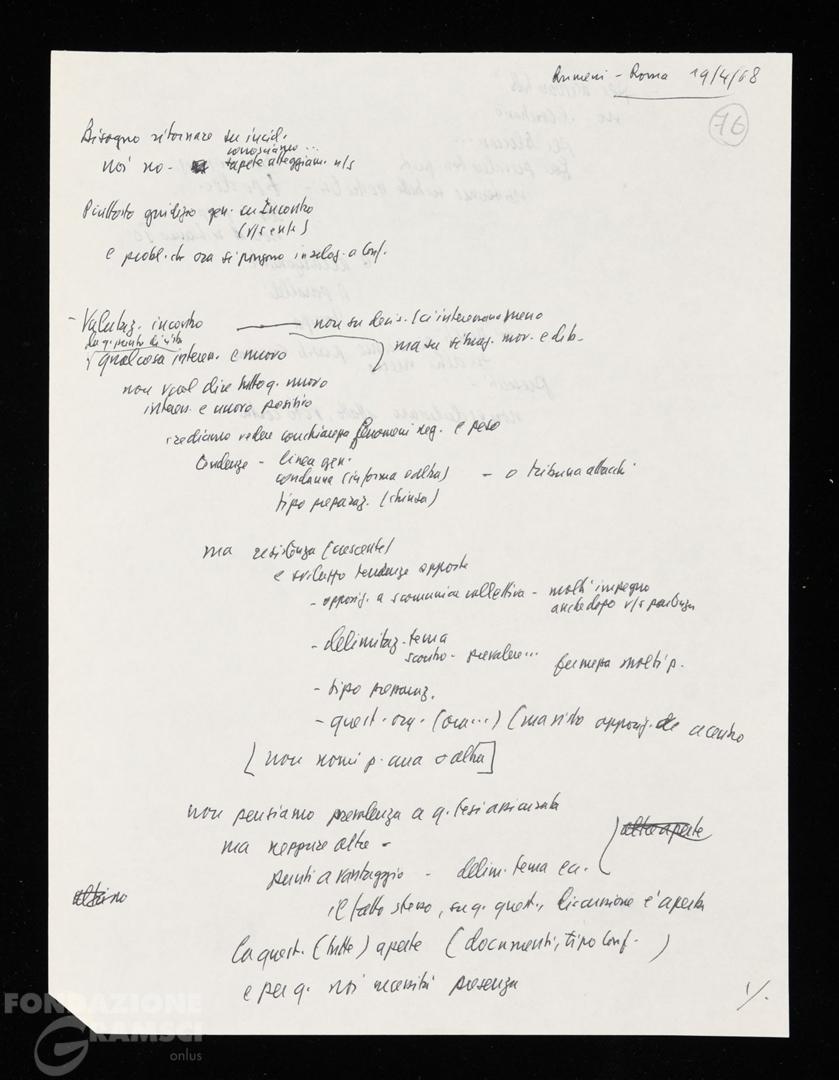 Rumeni - Roma 19/4/68
76
Bisogno ritornare su incid.
conosciamo...
noi no - sapete atteggiam. n/s
Piuttosto giudizio gen. su Incontro
(v/s e n/s)
e probl. che ora si pongono in relaz. a Conf.
- Valutaz. incontro — non su decis. (ci interessano meno
da q. punto di vista
ma su situaz. mov. e dib.
qualcosa interess. e nuovo
non vuol dire tutto q. nuovo
interess. e nuovo positivo
crediamo vedere con chiarezza fenomeni neg. e peso
tendenze - linea gen.
condanna (in forma o altra) - o tribuna attacchi
tipo preparaz. (chiusa)
ma resistenza (crescente)
e sviluppo tendenze opposte
- opposiz. a scomunica collettiva - molti impegno
anche dopo v/s partenza
- delimitaz. tema
scontro - prevalere... fermezza molti p.
- tipo preparaz.
- quest. org. (ora...) (ma visto opposiz. a centro
[non nomi p. una o altra]
non pensiamo prevalenza a q. tesi assicurata
ma neppure altre -
punti a vantaggio - delim. tema ecc.
altre aperte
il fatto stesso, su q. quest., discussione è aperta
la quest. (tutte) aperte (documenti, tipo Conf. )
e per q. noi necessità presenza
1/.
FONDAZIONE
GRAMSCI
onlus